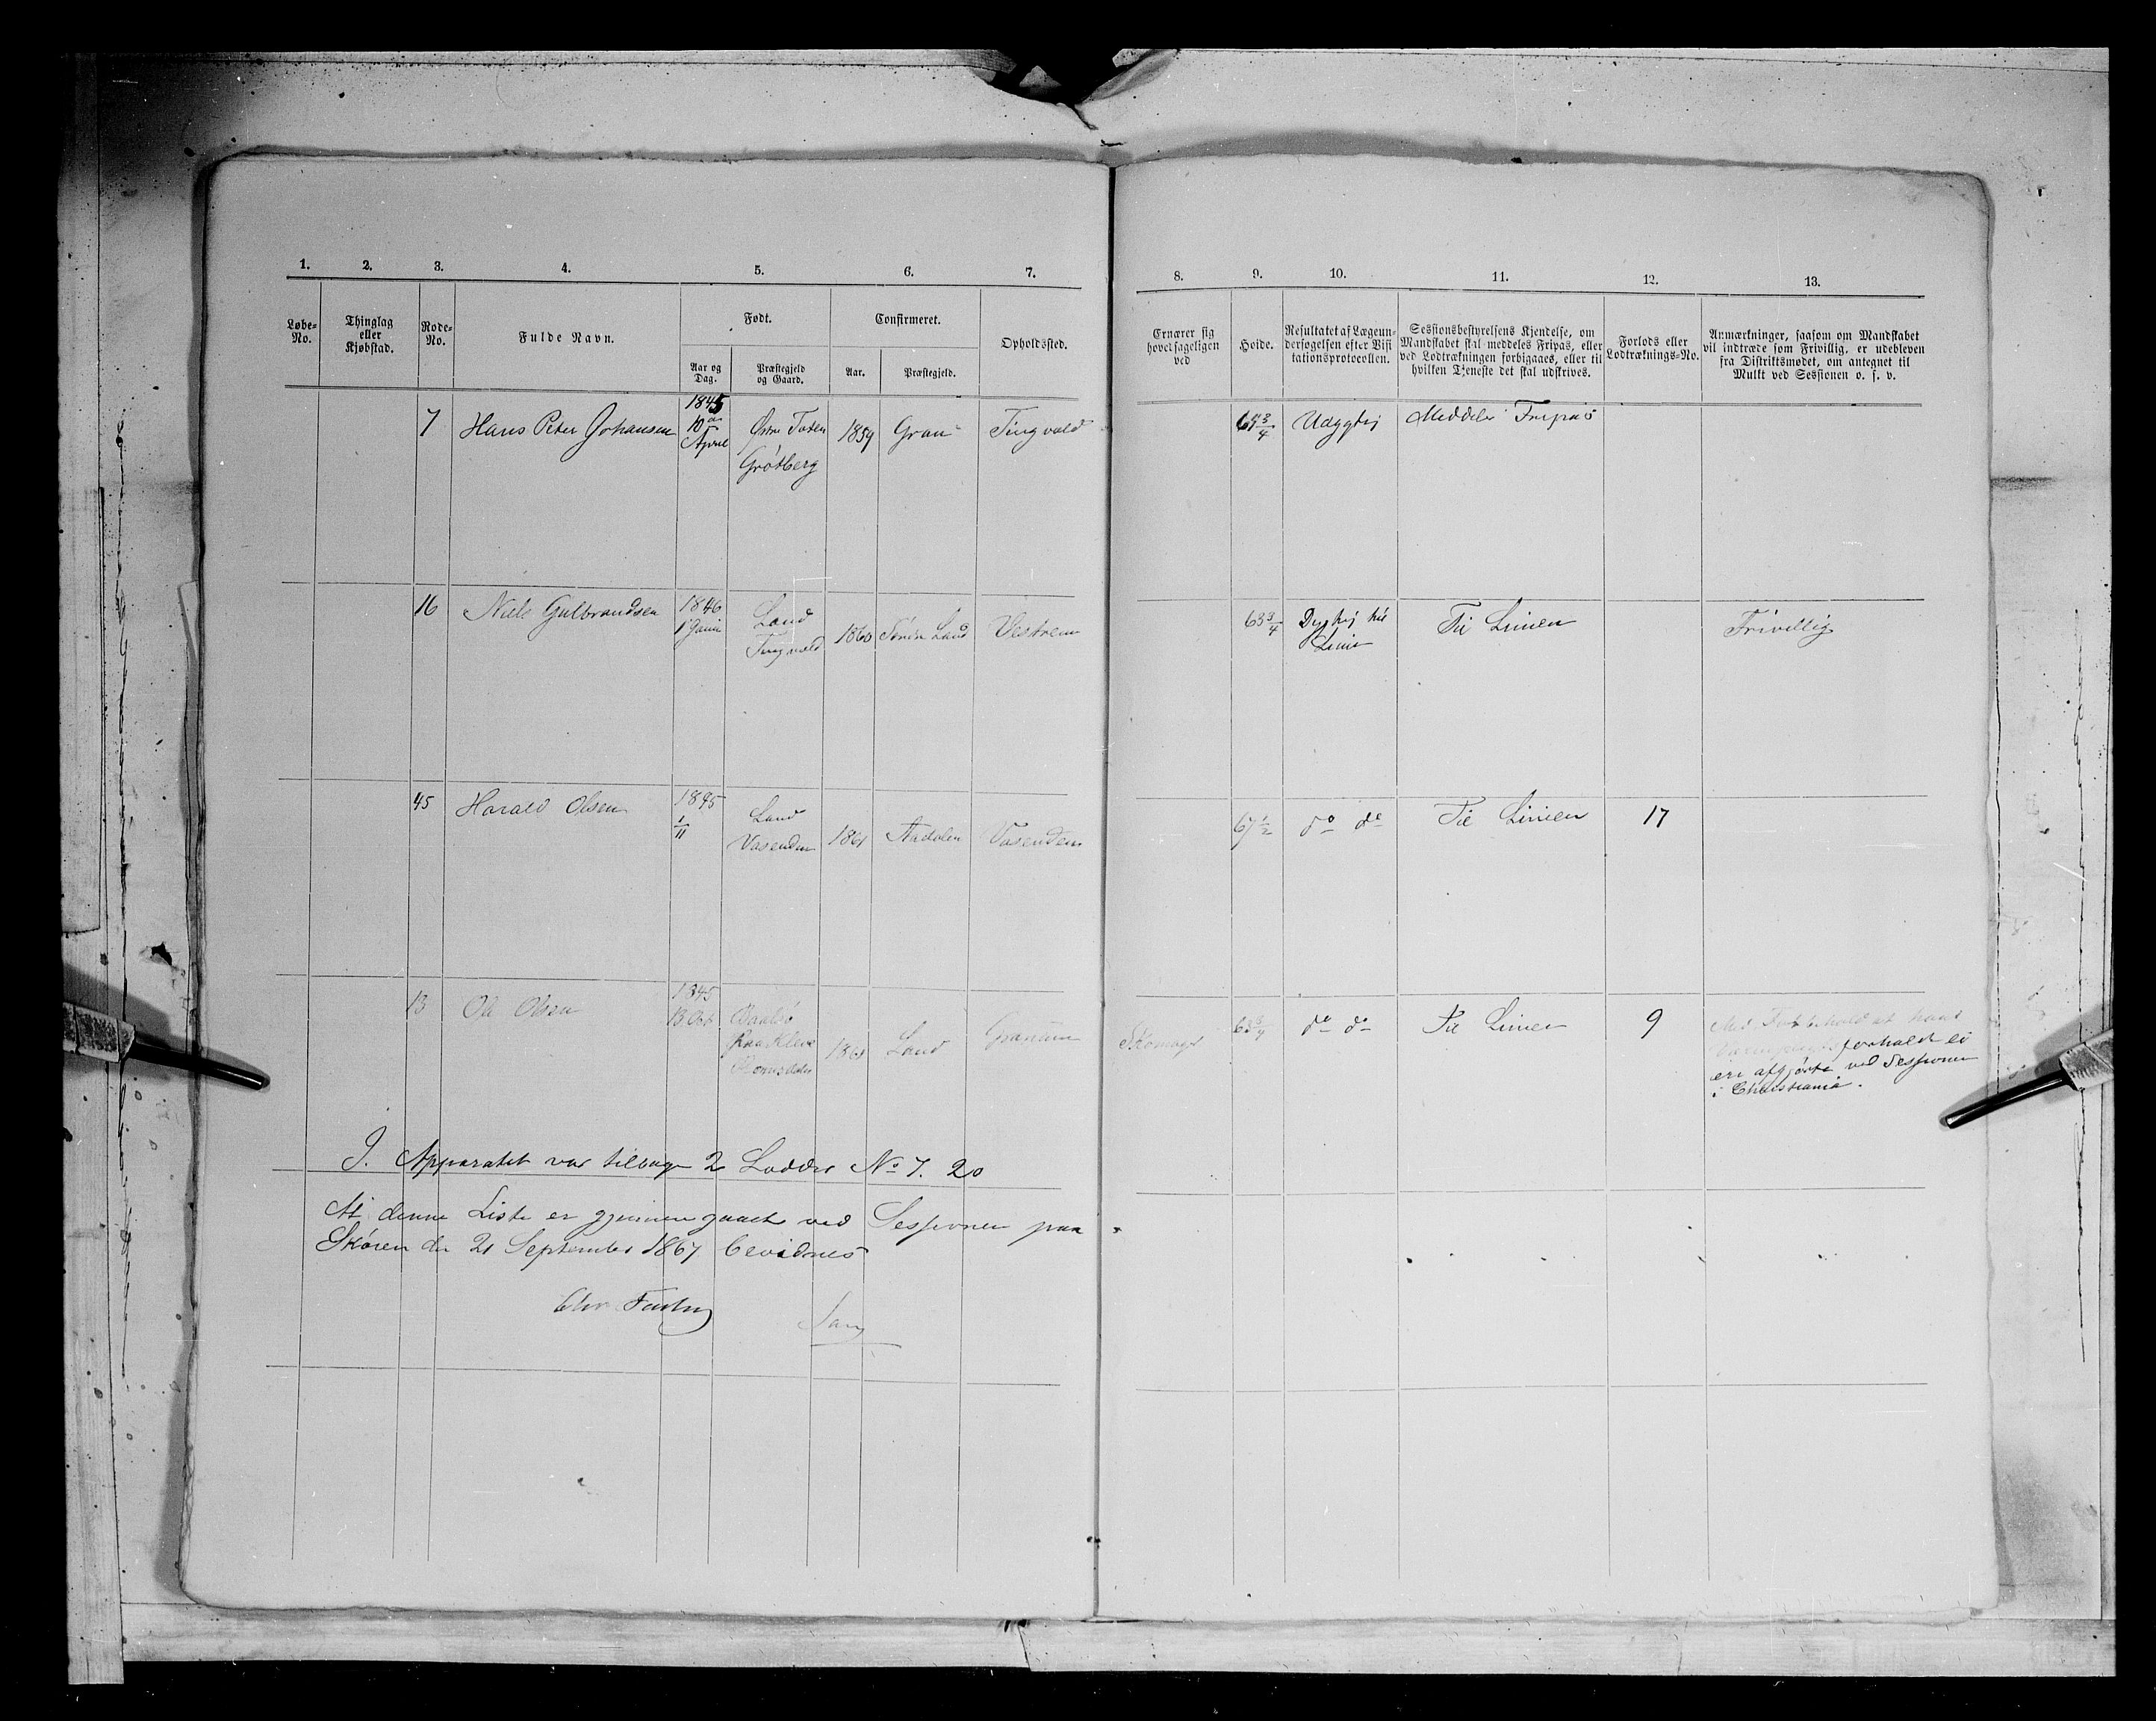 1. 2. 3. 4. 5. 6. 7. 8. 9. 10. 11. 12. 13.
Løbe-No.
Thinglag eller Kjøbstad.
Rode-No.
Fulde Navn.
Født.
Aar og Dag.
Præstegjeld og Gaard.
Confirmeret.
Aar.
Præstegjeld.
Opholdssted.
Ernærer sig hovedsageligen ved
Høide.
Resultatet af Lægeundersøgelsen efter Visitationsprotocollen.
Sessionsbestyrelsens Kjendelse, om Mandskabet skal meddeles Fripas, eller ved Lodtrækningen forbigaaes, eller til hvilken Tjeneste det skal udskrives.
Forlods eller Lodtræknings-No.
Anmærkninger, saasom om Mandskabet vil indtræde som Frivillig, er udebleven fra Distriktsmødet, om antegnet til Mulkt ved Sessionen o. s. v.
7 Hans Peter Johansen 1845 10de April Østre Toten Grøtberg 1859 Gran Tingvold 64 3/4 Udygtig Meddeles Fripas
16 Niels Gulbrandsen 1846 Land Tingvold 1860 Søndre Land Vestrem 63 3/4 Dygtig til Linien Til Linien Frivillig
45 Harald Olsen 1845 1/11 Land Vasenden 1861 Vasenden 67 1/2 do do Til Linien 17
13 Ole Olsen 1845 13 Oct 1861 Land Granum Skomager 63 3/4 do do Til Linien 9
Med Forbehold at hans
forhold ei
er afgjorte ved Sessionen
i Christiania.
I Apparatet var tilbage 2 Lodder No 7. 20
At denne Liste er gjennemgaaet ved Sessionen paa
Skøien den 21 September 1867 bevidnes
Chr